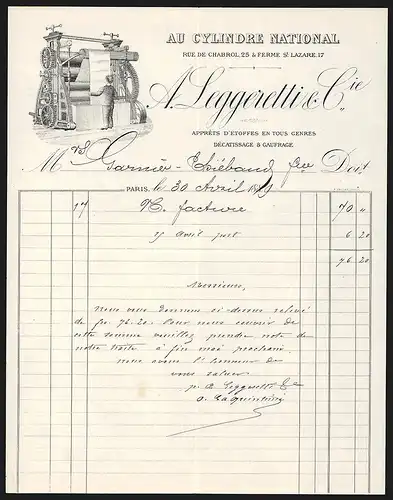 AU CYLINDRE NATIONAL
RUE DE CHABROL, 25 & FERME St LAZARE, 17
A. Leggeretti & Cie
APPRÊTS D'ÉTOFFES EN TOUS GENRES
DÉCATISSAGE & GAUFRAGE
Mrs Garnier-Thiébaud fres Doit
PARIS, le 30 Avril
N. facture 70 "
25 avril port 6 20
76 20
Messieurs,
Nous vous donnons ci-dessus relevé
de fr. 76.20. Pour nous couvrir de
cette somme veuillez prendre note de
notre traite à fin mai prochain.
Nous avons l'honneur de
vous saluer
p. A. Leggeretti & Cie